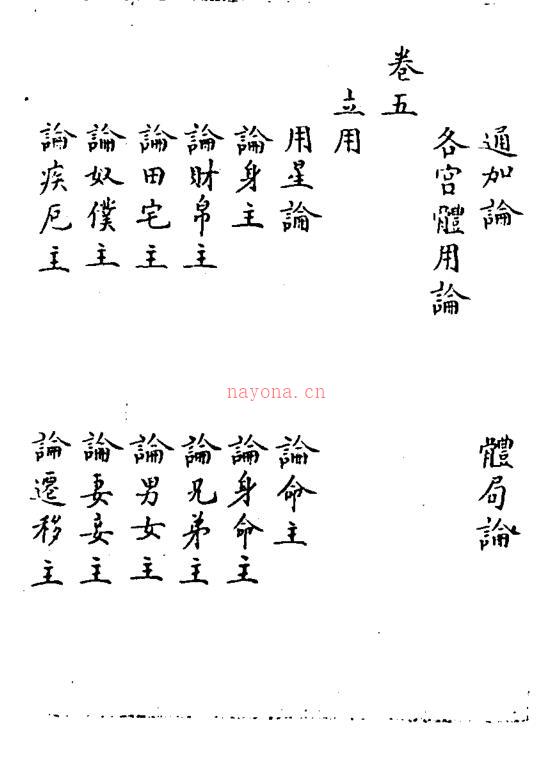 通加論
體局論
各宮體用論
卷五
立用
用星論
論命主
論身主
論身命主
論財帛主
論兄弟主
論田宅主
論男女主
論奴僕主
論妻妾主
論疾厄主
論遷移主
nayona.cn